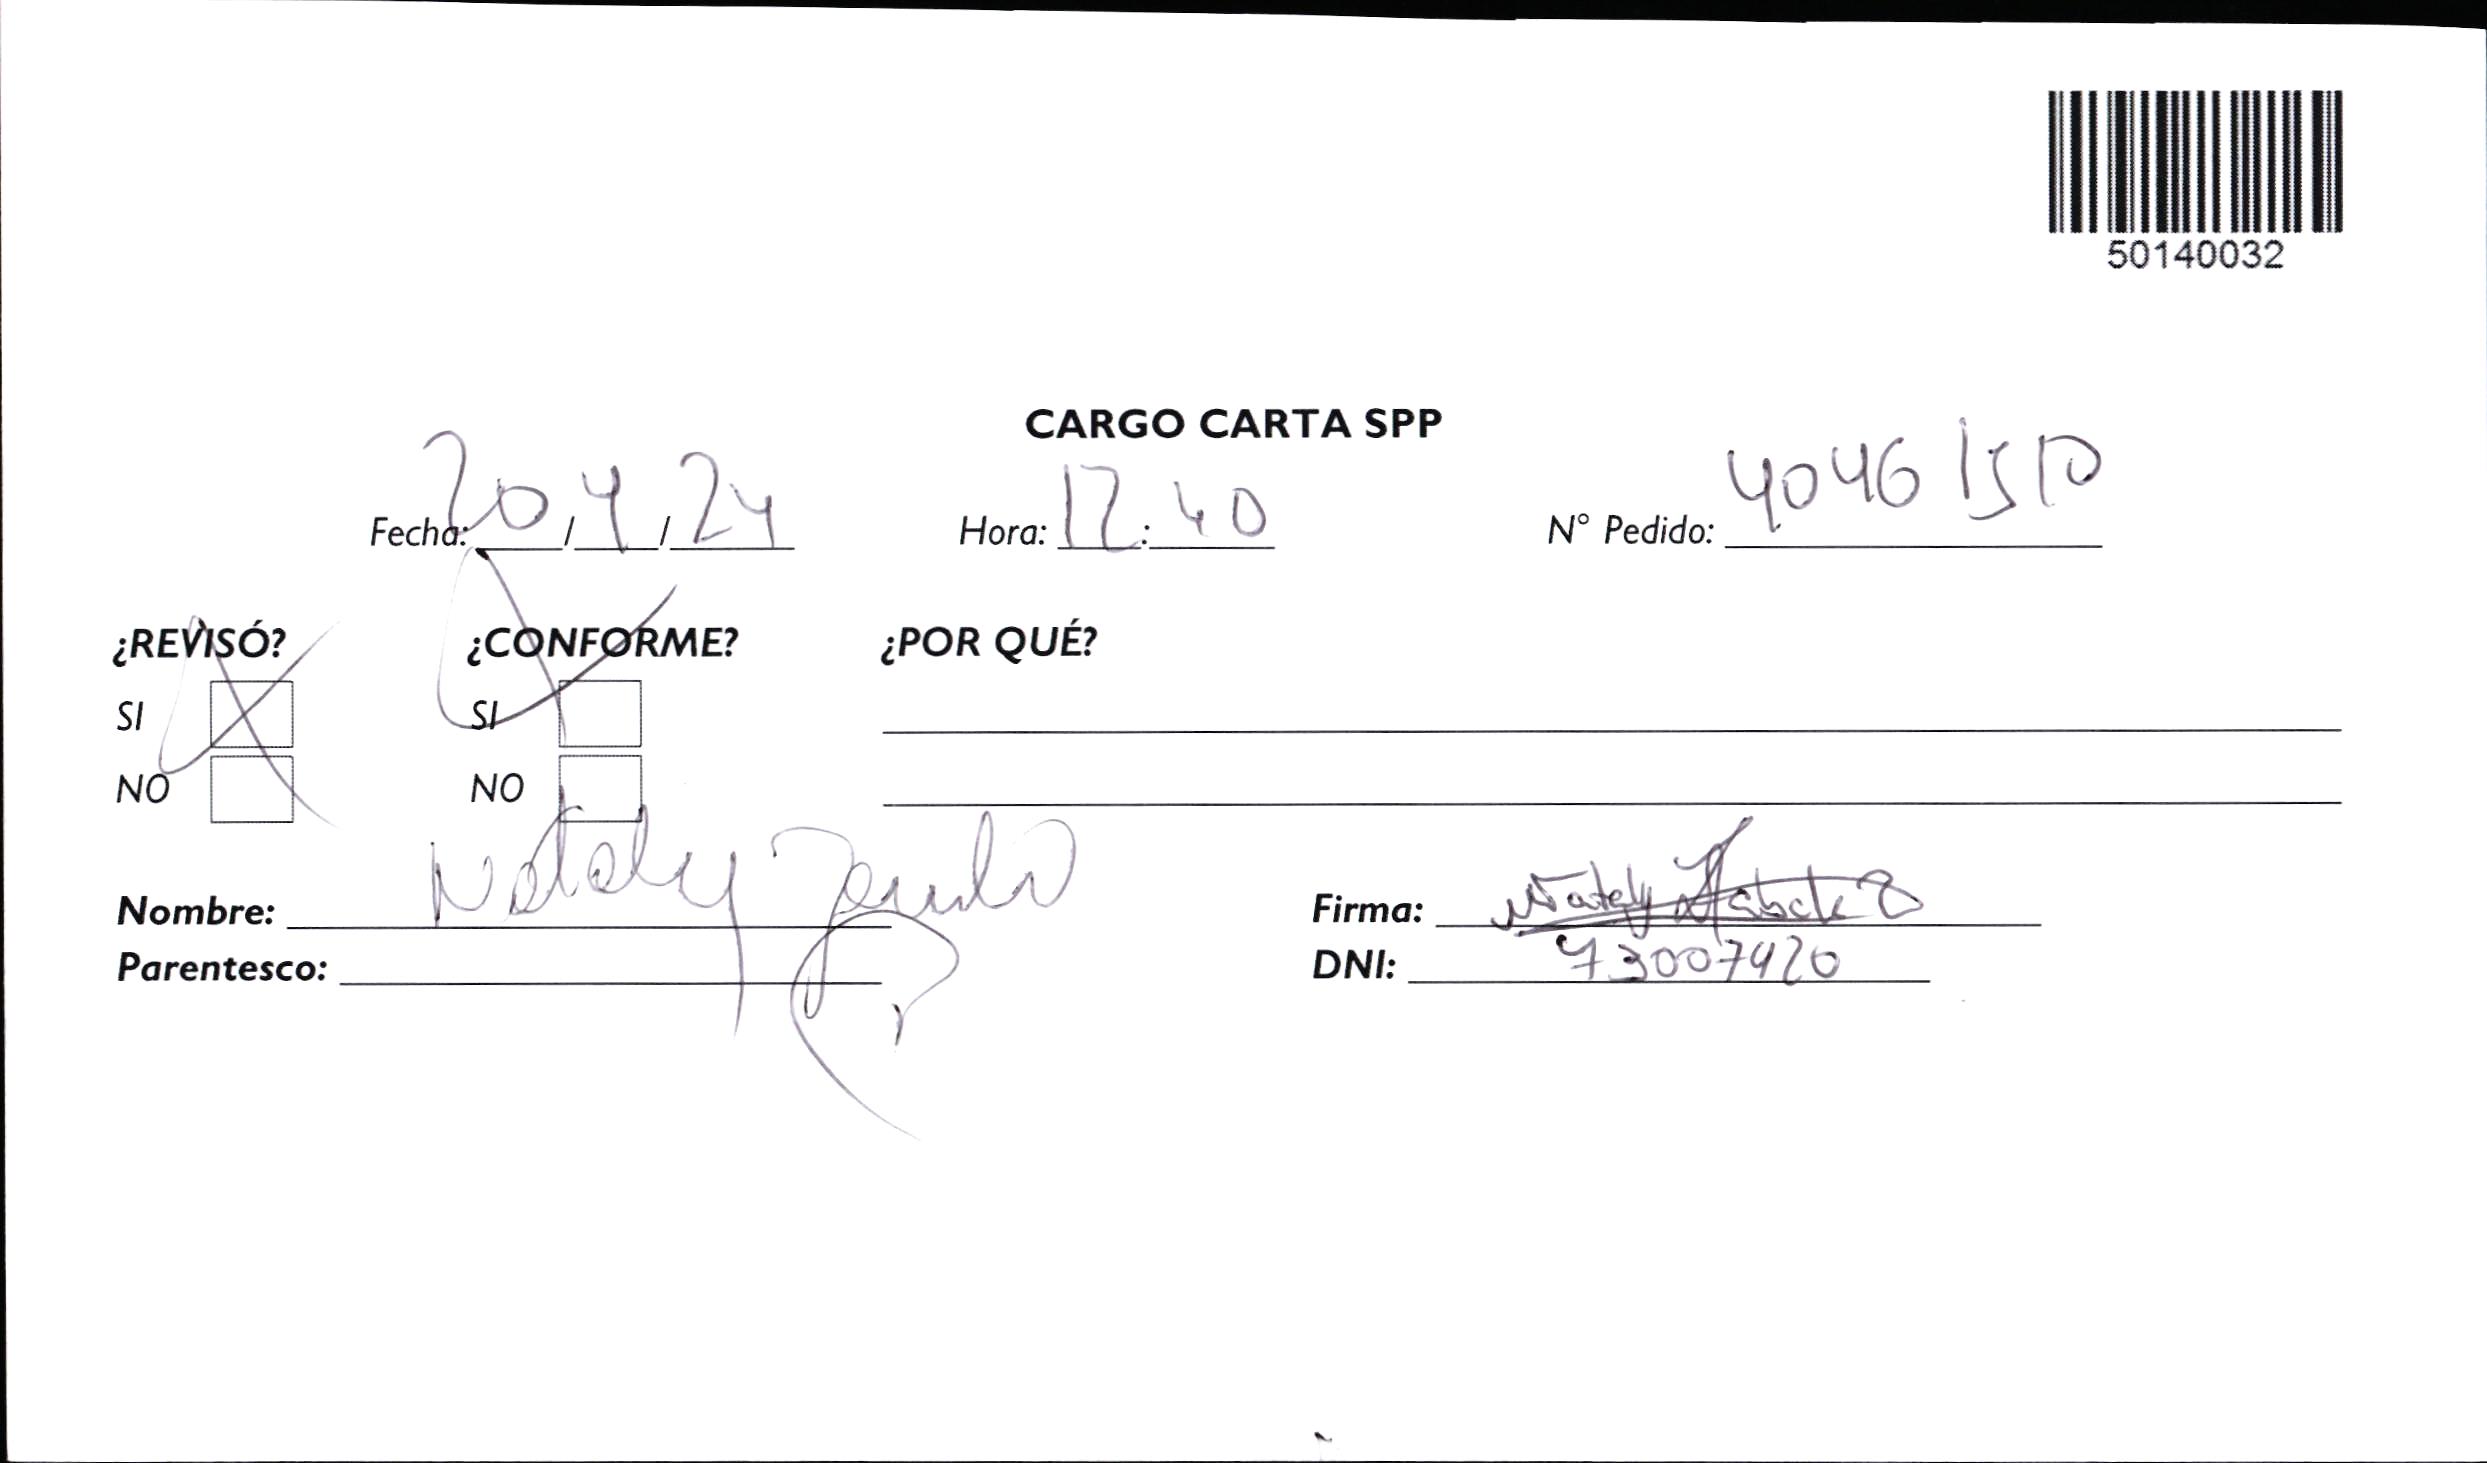 50140032
CARGO CARTA SPP
Fecha: 20/4/24 Hora: 12:40 N° Pedido: 40461510
¿REVISÓ? ¿CONFORME? ¿POR QUÉ?
SI SI
NO NO
Nombre: Nataly
Firma: Nataly
Parentesco:
DNI: 73007420